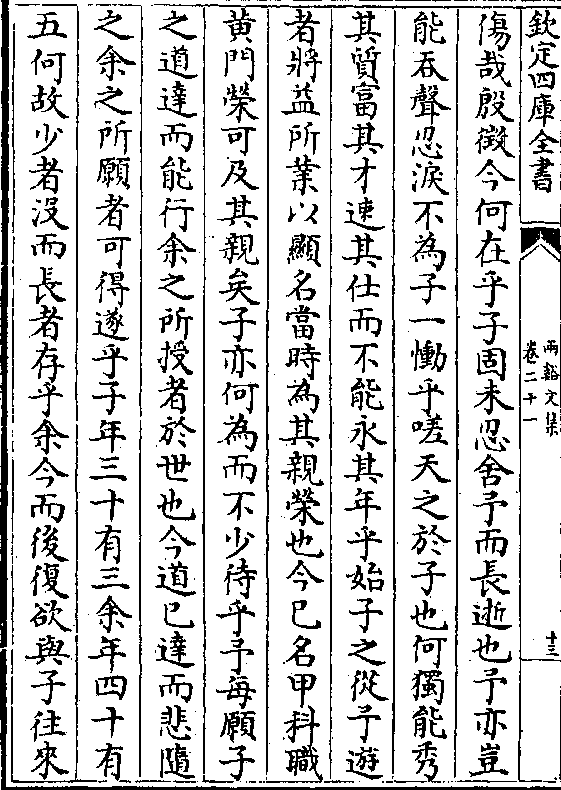 欽定四庫全書
兩谿文集
卷二十一
十三
傷哉殷徵今何在乎子固未忍舍予而長逝也予亦豈
能吞聲忍淚不為子一慟乎嗟天之於子也何獨能秀
其質富其才速其仕而不能永其年乎始子之從予遊
者將益所業以顯名當時為其親榮也今已名甲科職
黄門榮可及其親矣子亦何為而不少待乎予每願子
之道達而能行余之所授者於世也今道已達而悲隨
之余之所願者可得遂乎子年三十有三余年四十有
五何故少者沒而長者存乎余今而後復欲與子往來